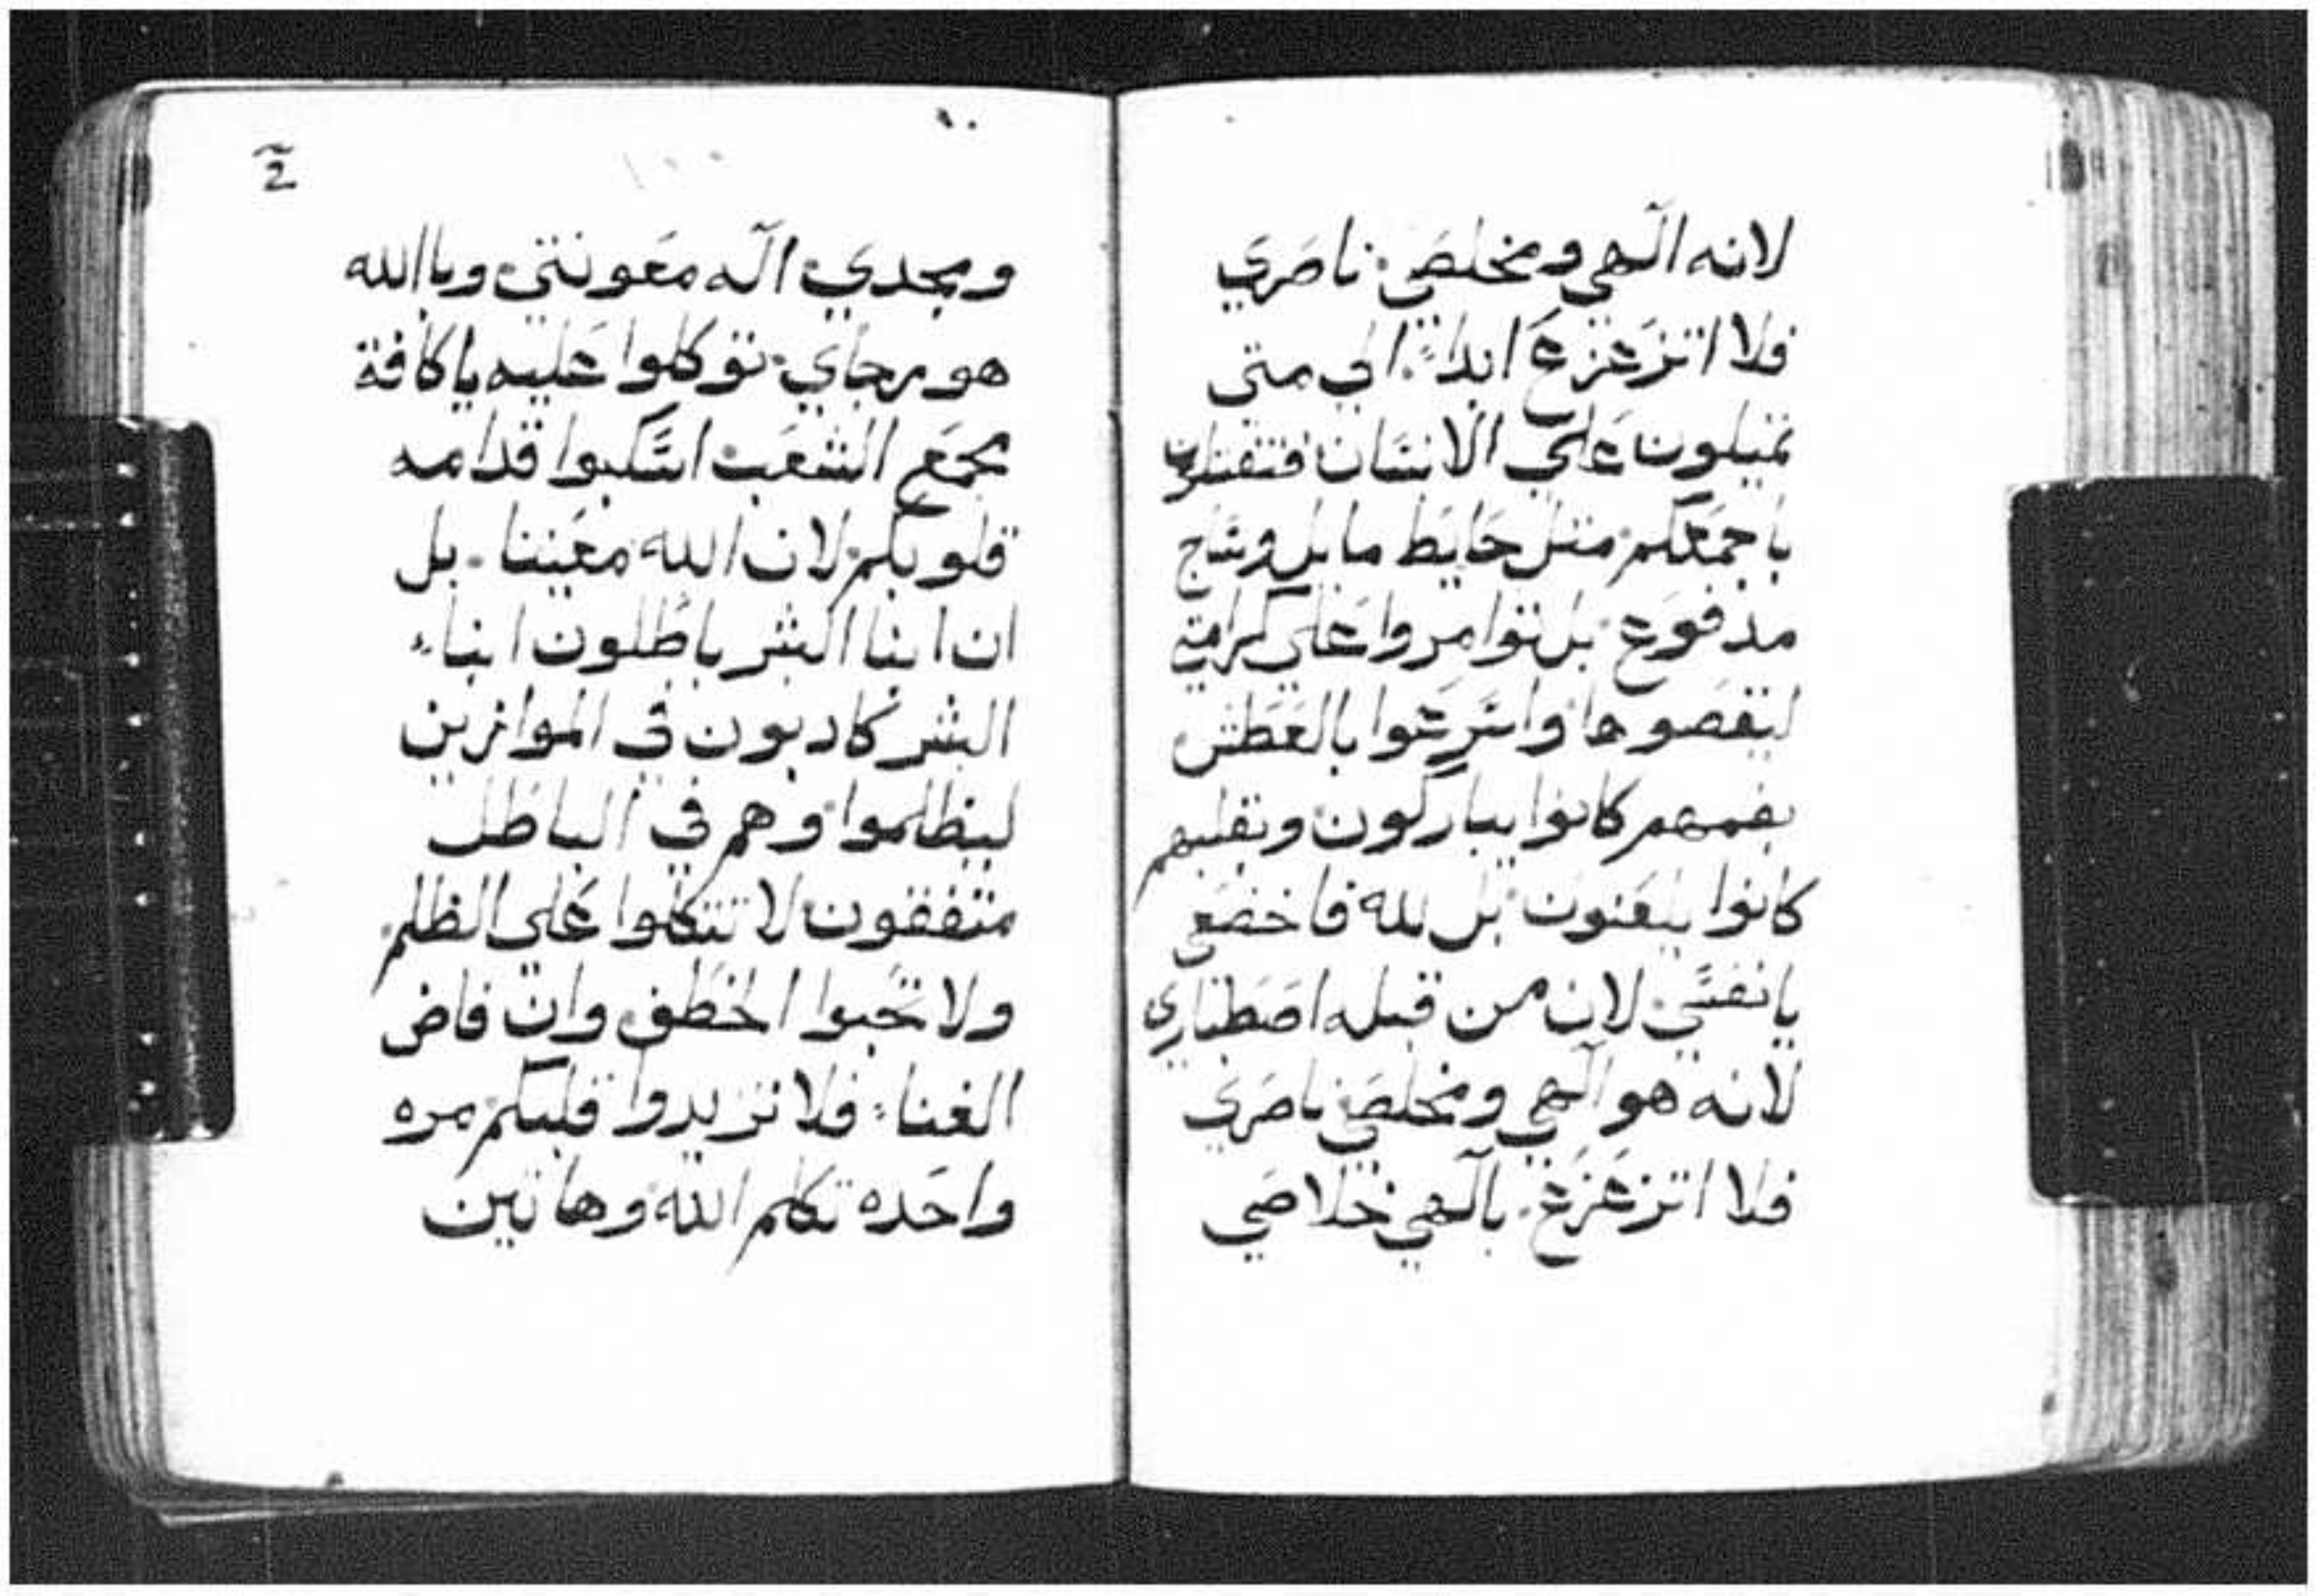 لانه الهي ومخلصي ناصري
فلا اتزعزع ابداً الي متى
تميلون علي الانسان فتقتلون
باجمعكم مثل حايط مايل وسياج
مدفوع بل توامروا علي كرامتي
ليقصوها واسرعوا بالعطش
بفمهم كانوا يباركون وبقلبهم
كانوا يلعنون بل لله فاخضعي
يا نفسي لان من قبله اصطباري
لانه هو الهي ومخلصي ناصري
فلا اتزعزع بالهي خلاصي
١٠
ح
ومجدي اله معونتي وباالله
هو رجاي توكلوا عليه يا كافة
مجمع الشعب اسكبوا قدامه
قلوبكم لان الله معيننا بل
ان ابنا البشر باطلون ابناء
البشر كادبون في الموازين
ليظلموا وهم في الباطل
متفقون لا تتكلوا علي الظلم
ولا تحبوا الخطف وان فاض
الغناء فلا تزيدوا قلبكم مره
واحده تكلم الله وهاتين